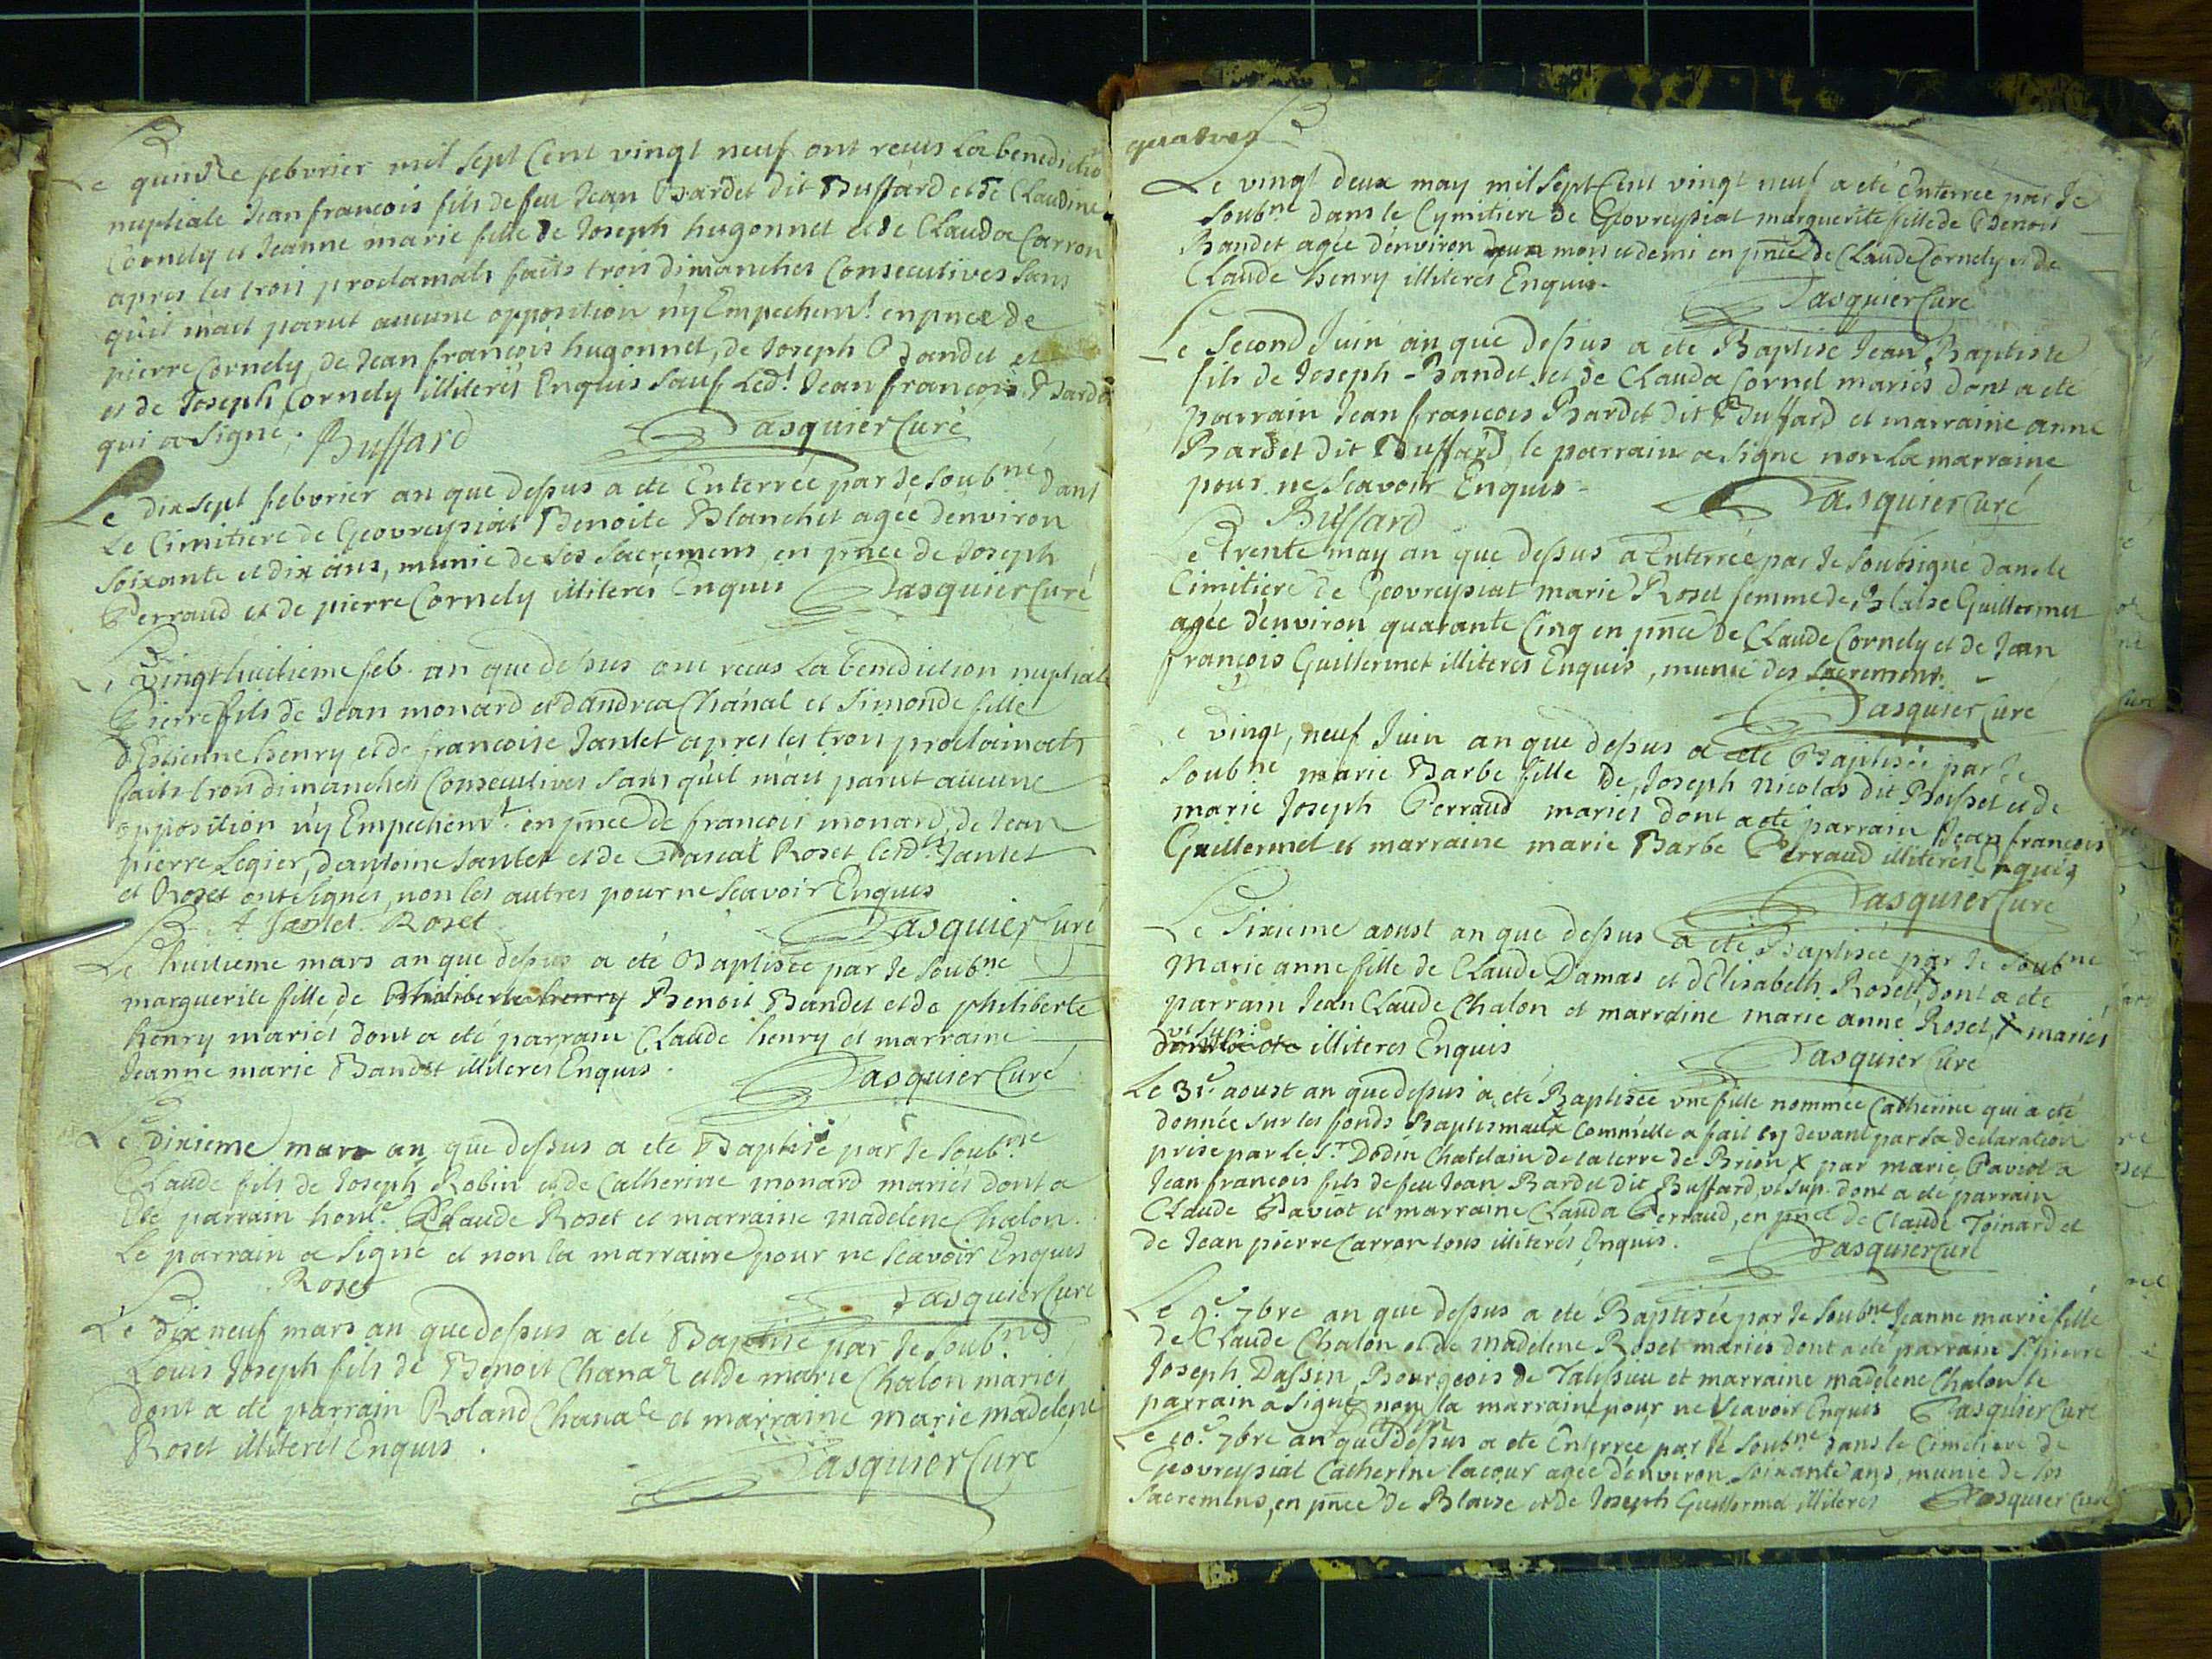 Le quinze febvrier mil sept Cent vingt neuf ont recus La benedictio
nuptiale Jean francois fils de feu Jean Bardet dit Buffard et de Claudine
Cornely et Jeanne marie fille de Joseph hugonnet et de Clauda Carron
apres les trois proclamats faits trois dimanches Consecutives sans
qu'il m'ait parut aucune opposition n'y Empechemt. en pnce de
pierre Cornely, de Jean françois hugonnet, de Joseph Bandet et
et de Joseph Cornely illiterés Enquis sauf Ledt. Jean françois Bardet
qui a signe. Buffard Pasquier Curé
Le dix sept febvrier an que dessus a ete Enterrée par Je soubne. dans
Le Cimitiere de Geovreysiat Benoite Blanchet agée d'environ
soixante et dix ans, munie de ses sacremens, en pnce de Joseph
Perraud et de pierre Cornely illiterés Enquis Pasquier Curé
Le vingt huitieme feb. an que dessus ont recus La benediction nuptiale
Pierre fils de Jean monard et d'andrea Chanal et Simonde fille
d'Estienne henry et de francoise Jantet apres les trois proclamats
faits trois dimanches Consecutives sans qu'il m'ait parut aucune
opposition n'y Empechemt. en pnce de francois monard, de Jean
pierre Legier, d'antoine Jantet et de Pascal Roset lesdts. Jantet
et Roset ont signés, non les autres pour ne scavoir Enquis
A Jantet Roset Pasquier Curé
Le huitieme mars an que dessus a été Baptisée par Je soubne.
marguerite fille de Philiberte henry Benoit Bandet et de philiberte
henry mariés dont a eté parrain Claude henry et marraine
Jeanne marie Bandet illiteres Enquis. Pasquier Curé
Le dixieme mars an que dessus a ete Baptisé par Je soubne.
Claude fils de Joseph Robin et de Catherine monard mariés dont a
Ete parrain honle. Claude Roset et marraine madelene Chalon.
Le parrain a signé et non la marraine pour ne scavoir Enquis
Roset Pasquier Curé
Le dix neuf mars an que dessus a eté Baptisé par Je soubné.
Louis Joseph fils de Benoit Chanal et de marie Chalon mariés
dont a eté parrain Roland Chanal et marraine marie madelene
Roset illiterés Enquis.
Pasquier Curé
quatres
Le vingt deux may mil sept Cent vingt neuf a eté Enterrée par Je
soubne. dans le Cymitiere de Geovreysiat marguerite fille de Benoit
Bandet agée d'environ deux mois et demi en pnce de Claude Cornely et de
Claude henry illiterés Enquis.
Pasquier Curé
Le second Juin an que dessus a eté Baptisé Jean Baptiste
fils de Joseph Bandet et de Clauda Cornel mariés dont a ete
parrain Jean francois Bardet dit Buffard et marraine anne
Bardet dit Buffard, le parrain a signe non La marraine
pour ne scavoir Enquis. Pasquier Curé
Buffard
Le trente may an que dessus a Enterrée par Je soubsigné dans le
Cimitiere de Geovreysiat marie Roset femme de Blaise Guillermet
agée d'environ quarante Cinq en pnce de Claude Cornely et de Jean
françois Guillermet illiteres Enquis, munie des sacremens.
Pasquier Curé
Le vingt, neuf Juin an que dessus a ete Baptisée par Je
soubne. marie Barbe fille de Joseph nicolas dit Boisset et de
marie Joseph Perraud mariés dont a eté parrain Jean francois
Guillermet et marraine marie Barbe Perraud illiteres Enquis
Pasquier Curé
Le sixieme aoust an que dessus a eté Baptisée par Je soubne
Marie anne fille de Claude Damas et d'Elisabeth Roset, dont a ete
parrain Jean Claude Chalon et marraine marie anne Roset, X mariés
vt sup:
dont a ete illiteres Enquis Pasquier Curé
Le 31e. aoust an que dessus a eté Baptisée une fille nommée Catherine qui a eté
donnée sur les fonds Baptismaux comm'elle a fait cy devant par sa declaration
prise par le Sr. Dodin Chatelain de la terre de Brion X par marie Paviot a
Jean francois fils de feu Jean Bardet dit Buffard, vt sup. dont a eté parrain
Claude Paviot et marraine Clauda Perraud, en pnce de Claude Toinard et
de Jean pierre Carron tous illiterés Enquis. Pasquier Curé
Le 9e. 7bre an que dessus a eté Baptisée par Je soubne. Jeanne marie fille
de Claude Chalon et de madelene Roset mariés dont a eté parrain Sr. pierre
Joseph Dassin, Bourgeois de Talissieu et marraine madelene Chalon le
parrain a signé non la marraine pour ne scavoir Enquis Pasquier Curé
Le 10e. 7bre an que dessus a ete Enterrée par Je soubne dans le Cimetiere de
Geovreysiat Catherine lacour agée d'environ soixante ans, munie de ses
sacremens, en pnce de Blaise et de Joseph Guillermet illiteres Pasquier Curé